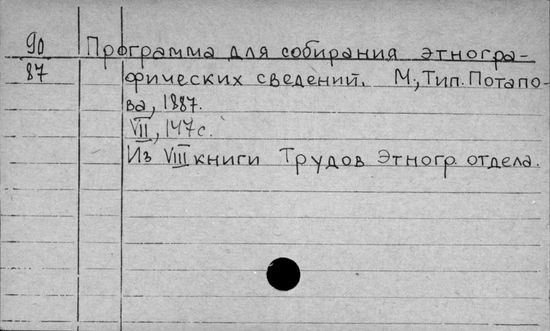 90 Программа для собирания этногра-
87 фических сведений. М., Тип. Потапо-
ва, 1887.
VII, 147 с.
Из VIII книги Трудов Этногр. отдела.